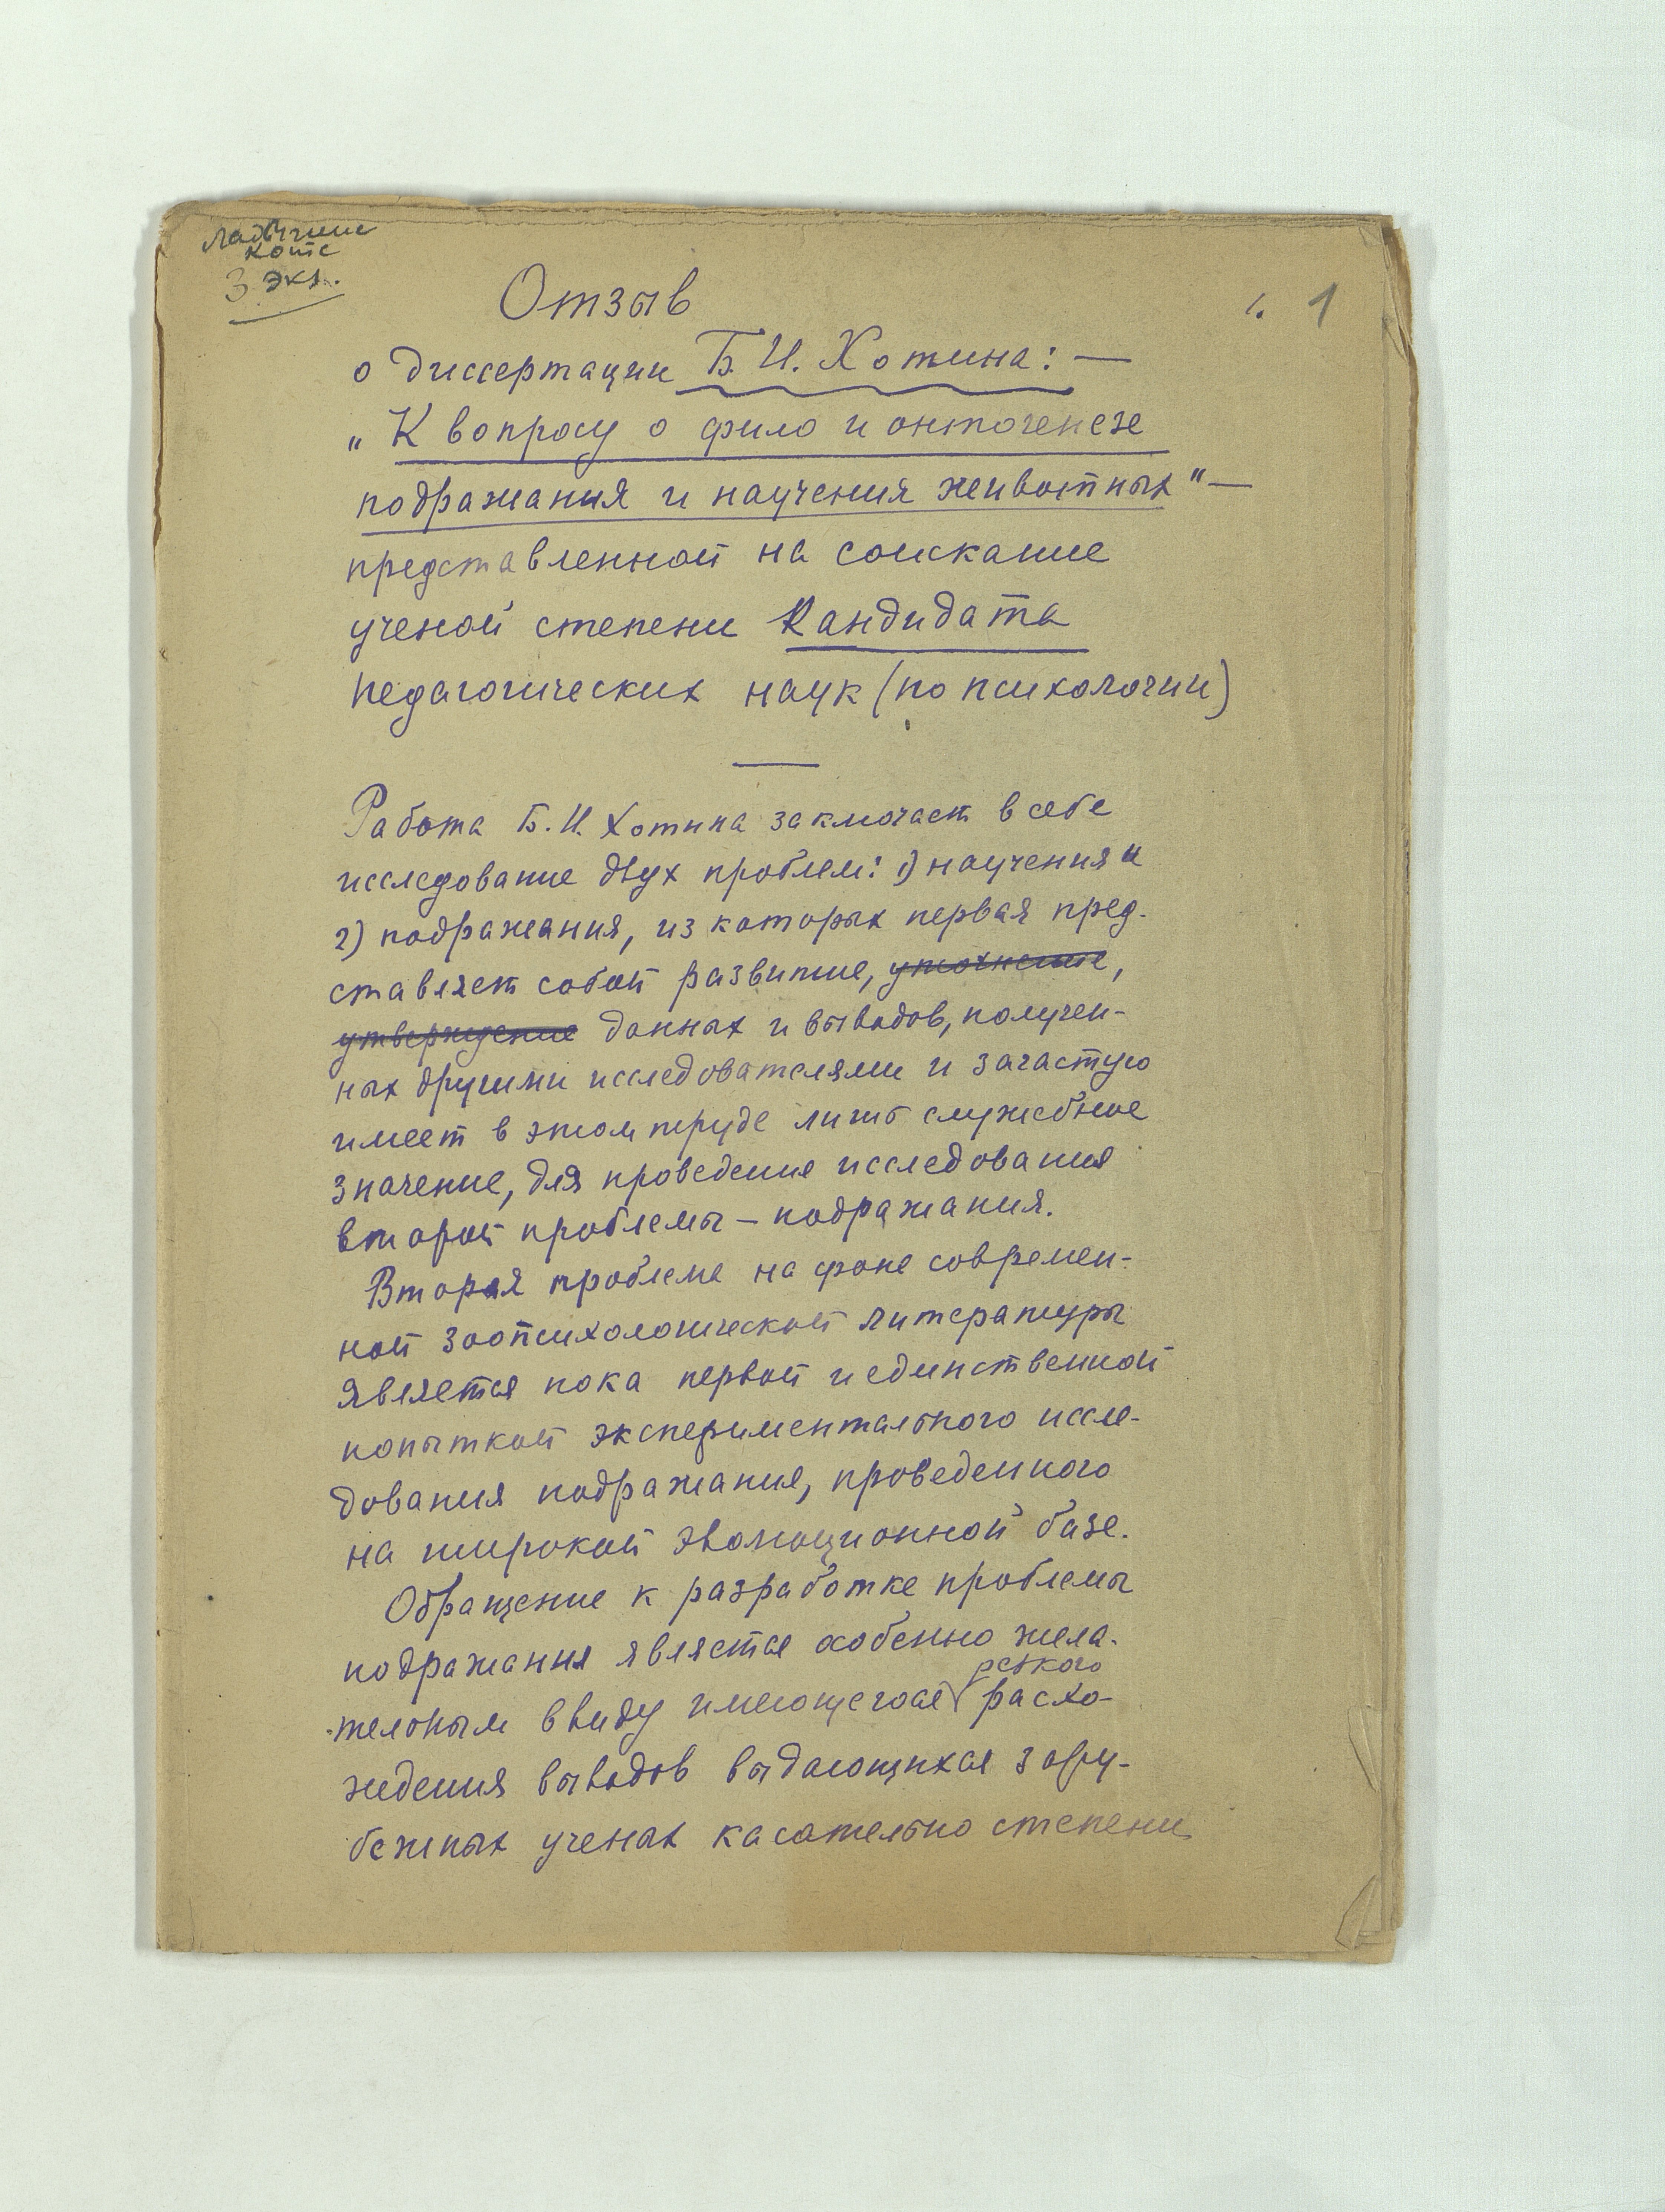 Ладыгине
Котс
3 экз.
1. 1
Отзыв
о диссертации Б. И. Хотина: —
„К вопросу о фило и онтогенезе
подражания и научения животных" —
представленной на соискание
ученой степени Кандидата
педагогических наук (по психологии)
Работа Б. И. Хотина заключает в себе
исследование двух проблем: 1) научения и
2) подражания, из которых первая пред-
ставляет собой развитие, уточнение,
утверждение данных и выводов, получен-
ных другими исследователями и зачастую
имеет в этом труде лишь служебное
значение, для проведения исследования
второй проблемы — подражания.
Вторая проблема на фоне современ-
ной зоопсихологической литературы
является пока первой и единственной
попыткой экспериментального иссле-
дования подражания, проведенного
на широкой эволюционной базе.
Обращение к разработке проблемы
подражания является особенно жела-
резкого
тельным ввиду имеющегося расхо-
ждения выводов выдающихся зару-
бежных ученых касательно степени